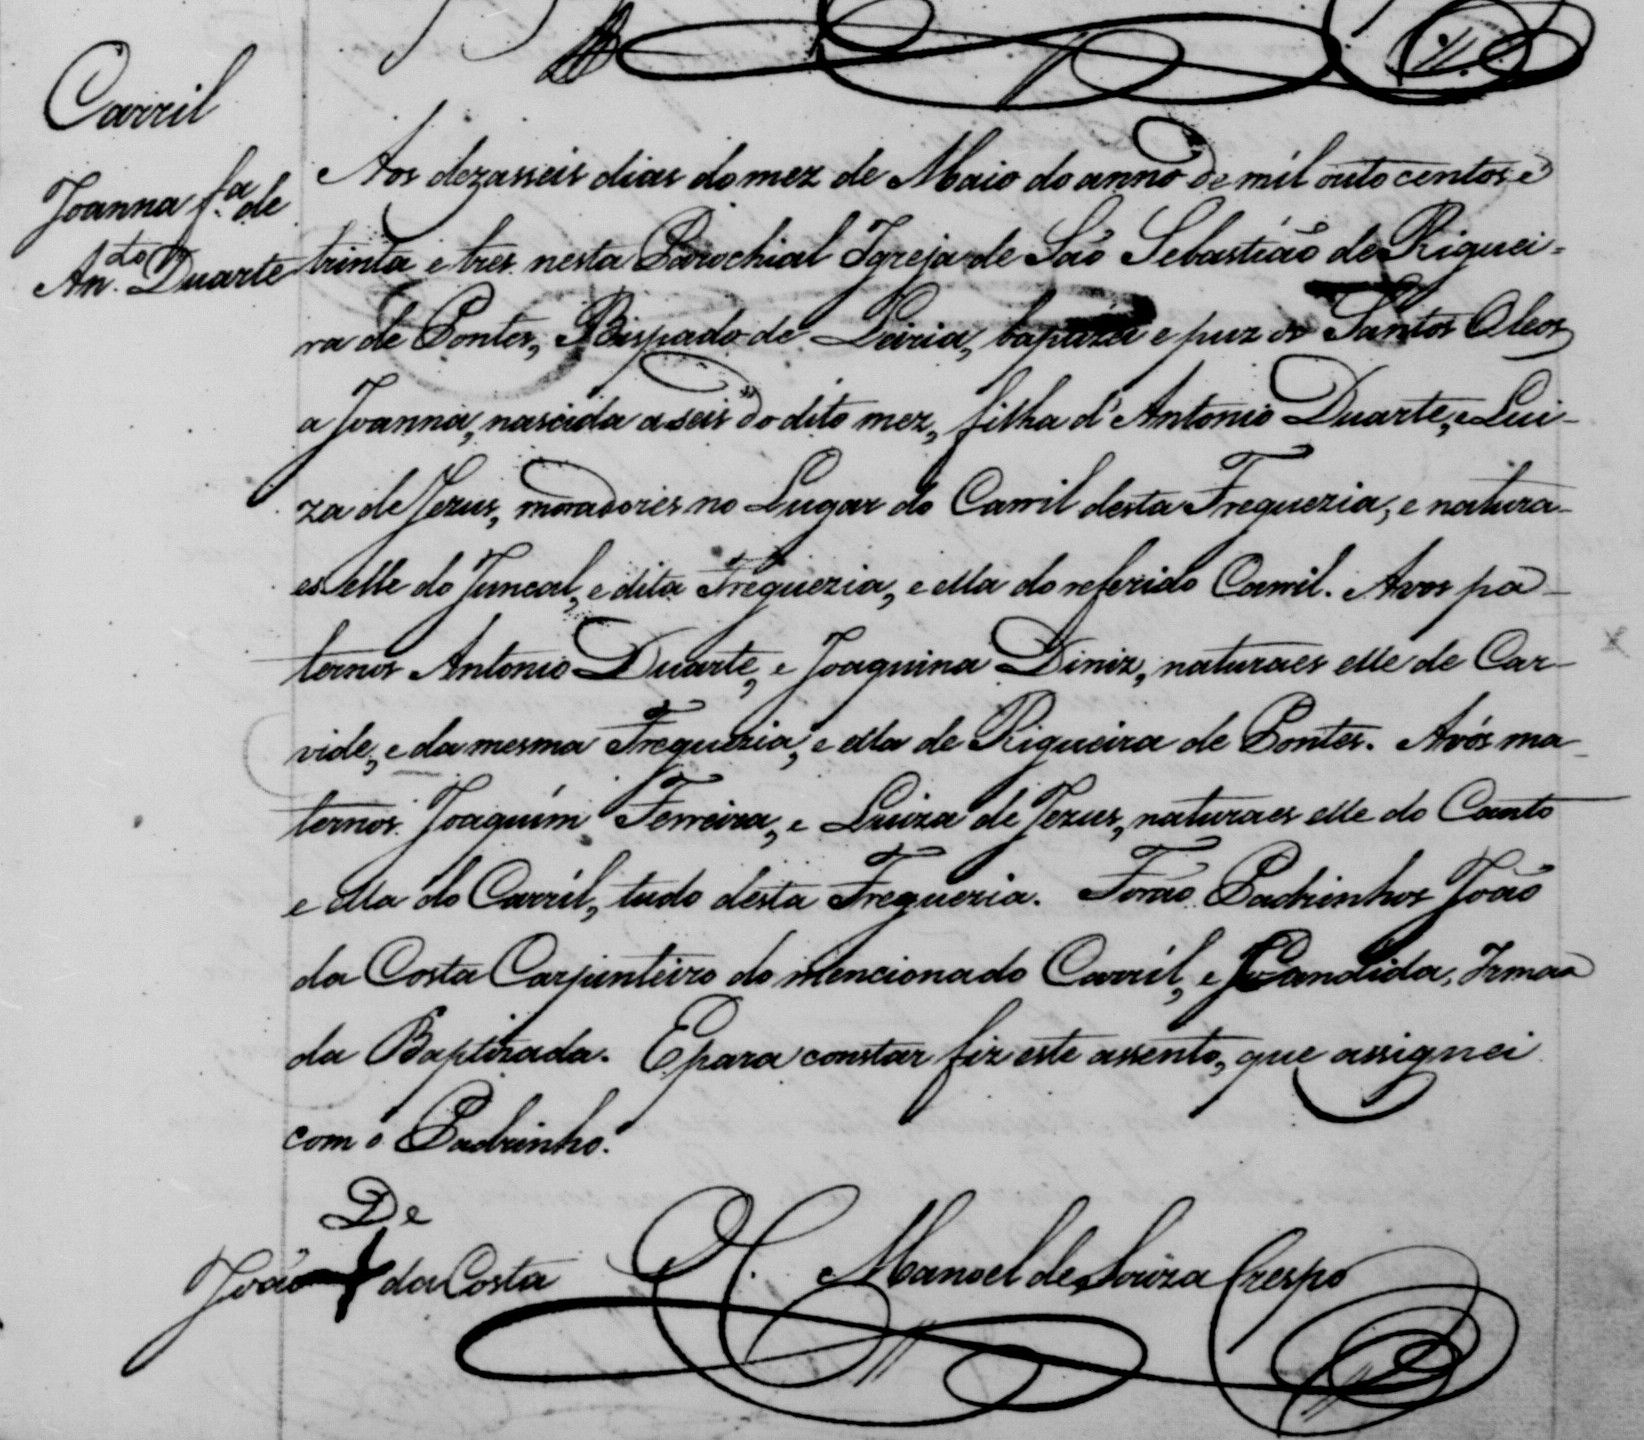 Carril
Joanna f.ª de
An.to Duarte
Aos dezasseis dias do mez de Maio do anno de mil outocentos e
trinta e tres nesta Parochial Igreja de São Sebastião de Riguei-
ra de Pontes, Bispado de Leiria, baptizei e puz os Santos Oleos
a Joanna, nascida a seis do dito mez, filha d'Antonio Duarte, e Lui-
za de Jezus, moradores no Lugar do Carril desta Freguezia, e natura-
es elle do Juncal, e dita Freguezia, e ella do referido Carril. Avos pa-
ternos Antonio Duarte, e Joaquina Diniz, naturaes elle de Car-
vide, e da mesma Freguezia, e ella de Rigueira de Pontes. Avós ma-
ternos Joaquim Ferreira, e Luiza de Jezus, naturaes elle do Canto
e ella do Carril, tudo desta Freguezia. Forão Padrinhos João
da Costa Carpinteiro do mencionado Carril, e Candida, Irmaa
da Baptizada. E para constar fiz este assento, que assignei
com o Padrinho.
De
João da Costa
O C. Manoel de Souza Crespo